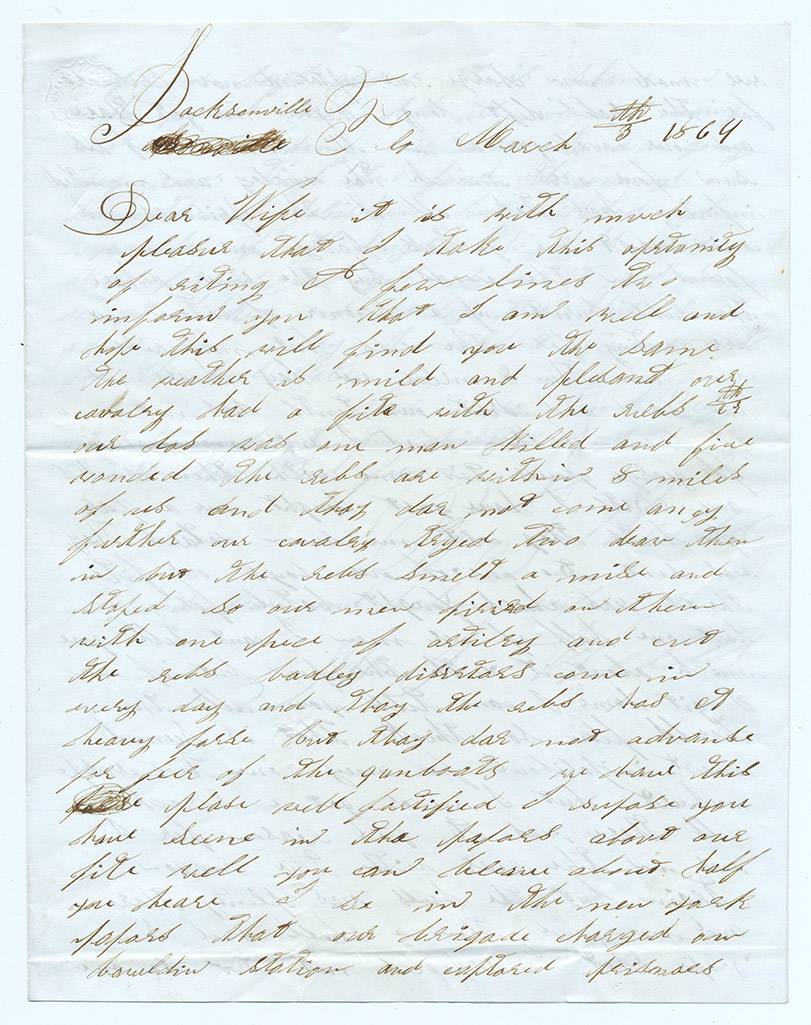 Jacksonville Flo March 3th 1864
Dear Wife it is with much
pleasur that I take this opertunity
of riting A few lines two
inform you that I am well and
hope this will find you the same
the weather is mild and plesant our
cavalry had a fite with the rebs th
our los was one man killed and five
wonded the rebs are within 8 miles
of us and thay dar not come any
further our cavalry tryed two draw them
in but the rebs smelt a mise and
stoped so our men firied on them
with one pece of artilry and cut
the rebs badley disertors come in
every day and thay the rebs has A
heavy forse but thay dar not advanse
for feer of the gunboats we have this
plase well fortified I supose you
have seene in the papors about our
fite well you can beleave about half
you heare I se in the new york
papors that our brigade charged on
bauldin station and captored prisnors